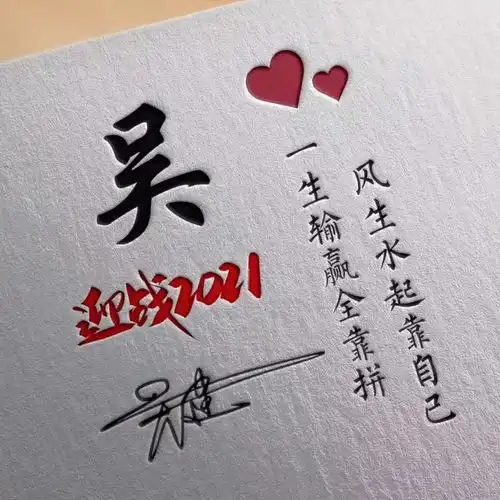 吴
迎战2021
风生水起靠自己
一生输赢全靠拼